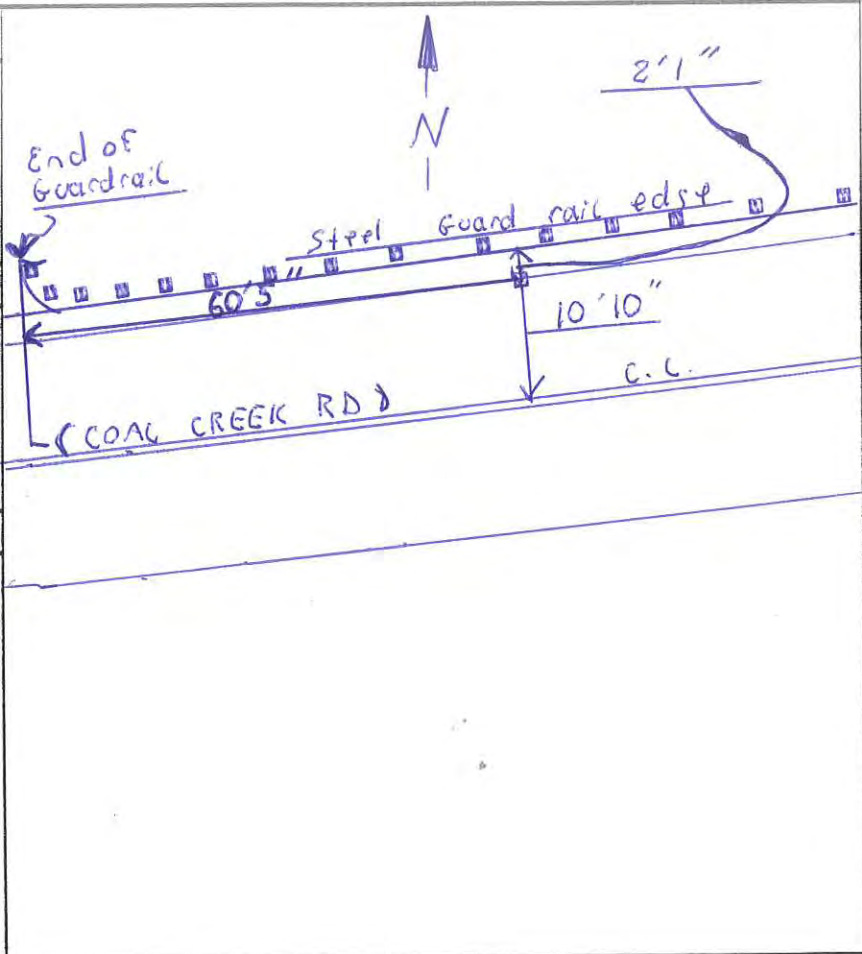 2'1"
N
End of
Guardrail
Steel Guard rail edge
60'5"
10'10"
C.L.
(COAL CREEK RD)